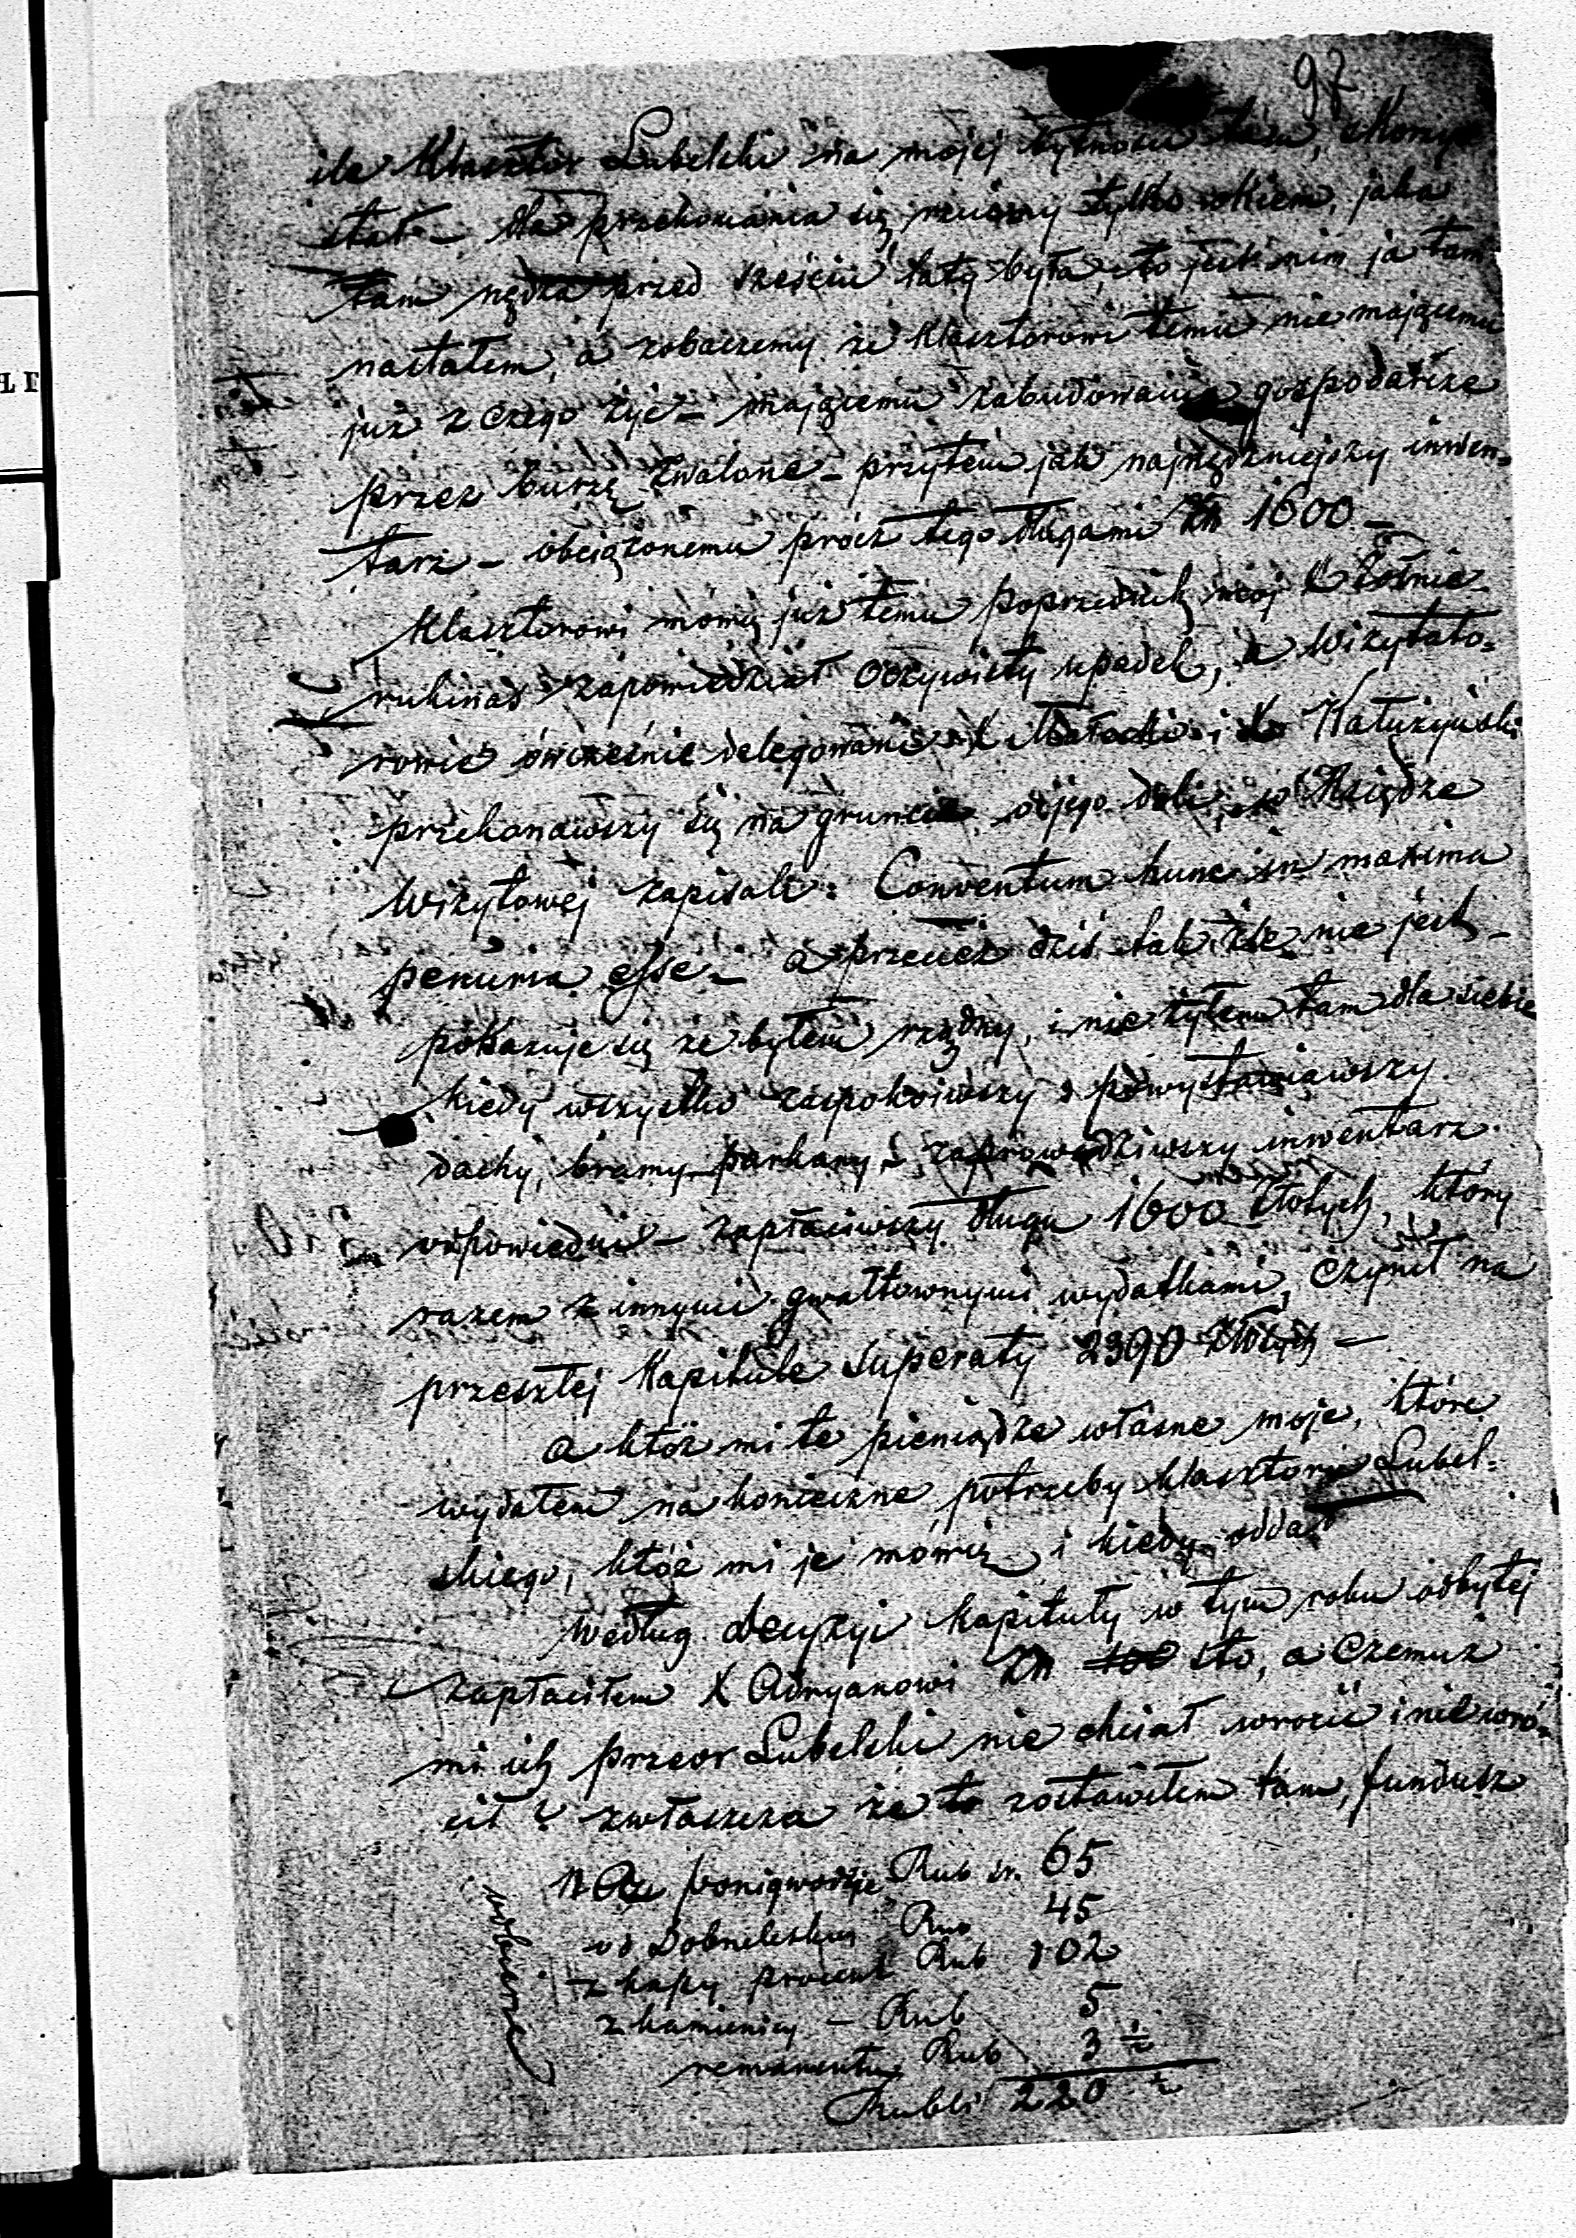 97
ile Klasztor Lubelski na mojej bytności tam, skorzy-
stał – dla przekonania się rzućmy tylko okiem, jaka
tam nędza przed sześciu laty była, to jest nim ja tam
nastałem, a zobaczemy że klasztorowi temu nie mającemu
już z czego żyć – mającemu zabudowania gospodarcze
przez burzę zwalone – przytem jak najnędzniejszy inwen-
tarz – obciążonemu prócz tego długami Zł 1600 –
Klasztorowi mówię już temu poprzednik mój X
zapowiedział oczywisty upadek, a Wizytato-
rowie ówcześnie delegowani X Małecki i X Kałużyński
przekonawszy się na gruncie o jego doli, w Księdze
Wizytowej zapisali: Conventum hunc in maxima
penuria esse – a przecież dziś tak źle nie jest –
pokazuje się że byłem rządny, i nie żyłem tam dla siebie
kiedy wszystko zaspokoiwszy i powystawiawszy
dachy, bramy parkany i zaprowadziwszy inwentarz
odpowiedni – zapłaciwszy długu 1600 złotych, który
razem z innymi gwałtownymi wydatkami, czynił na
przeszłej Kapitule Superaty 2390 złotych –
a któż mi te pieniądze własne moje, które
wydałem na konieczne potrzeby klasztoru Lubel-
skiego, któż mi je mówię i kiedy odda
Według decyzyi Kapituły w tym roku odbytej
zapłaciłem X Adryanowi Zł 100 sto, a czemuż
mi ich przeor Lubelski nie chciał wrócić i nie wró-
cił? zwłaszcza że to zostawiłem tam, fundusz
Rub sr. 65
od Rub 45
z kapy procent Rub 102
z kamienicy – Rub 5
remanentu Rub 3 ½
Rubli 220 ½